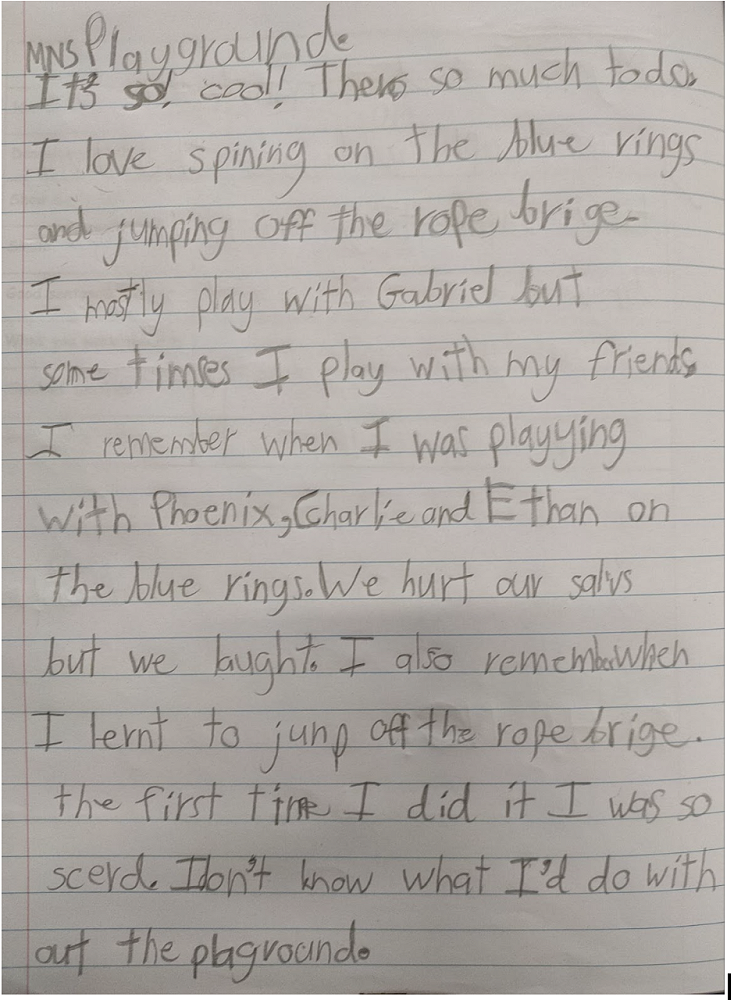 MNS Playground.
It's so! cool! Thers so much to do.
I love spining on the blue rings
and jumping off the rope brige.
I mostly play with Gabriel but
some timses I play with my friends.
I remember when I was playying
with Phoenix, Charlie and Ethan on
the blue rings. We hurt our salvs
but we laught. I also remember when
I lernt to jump off the rope brige.
the first time I did it I was so
scerd. I don't know what I'd do with
out the plaground.